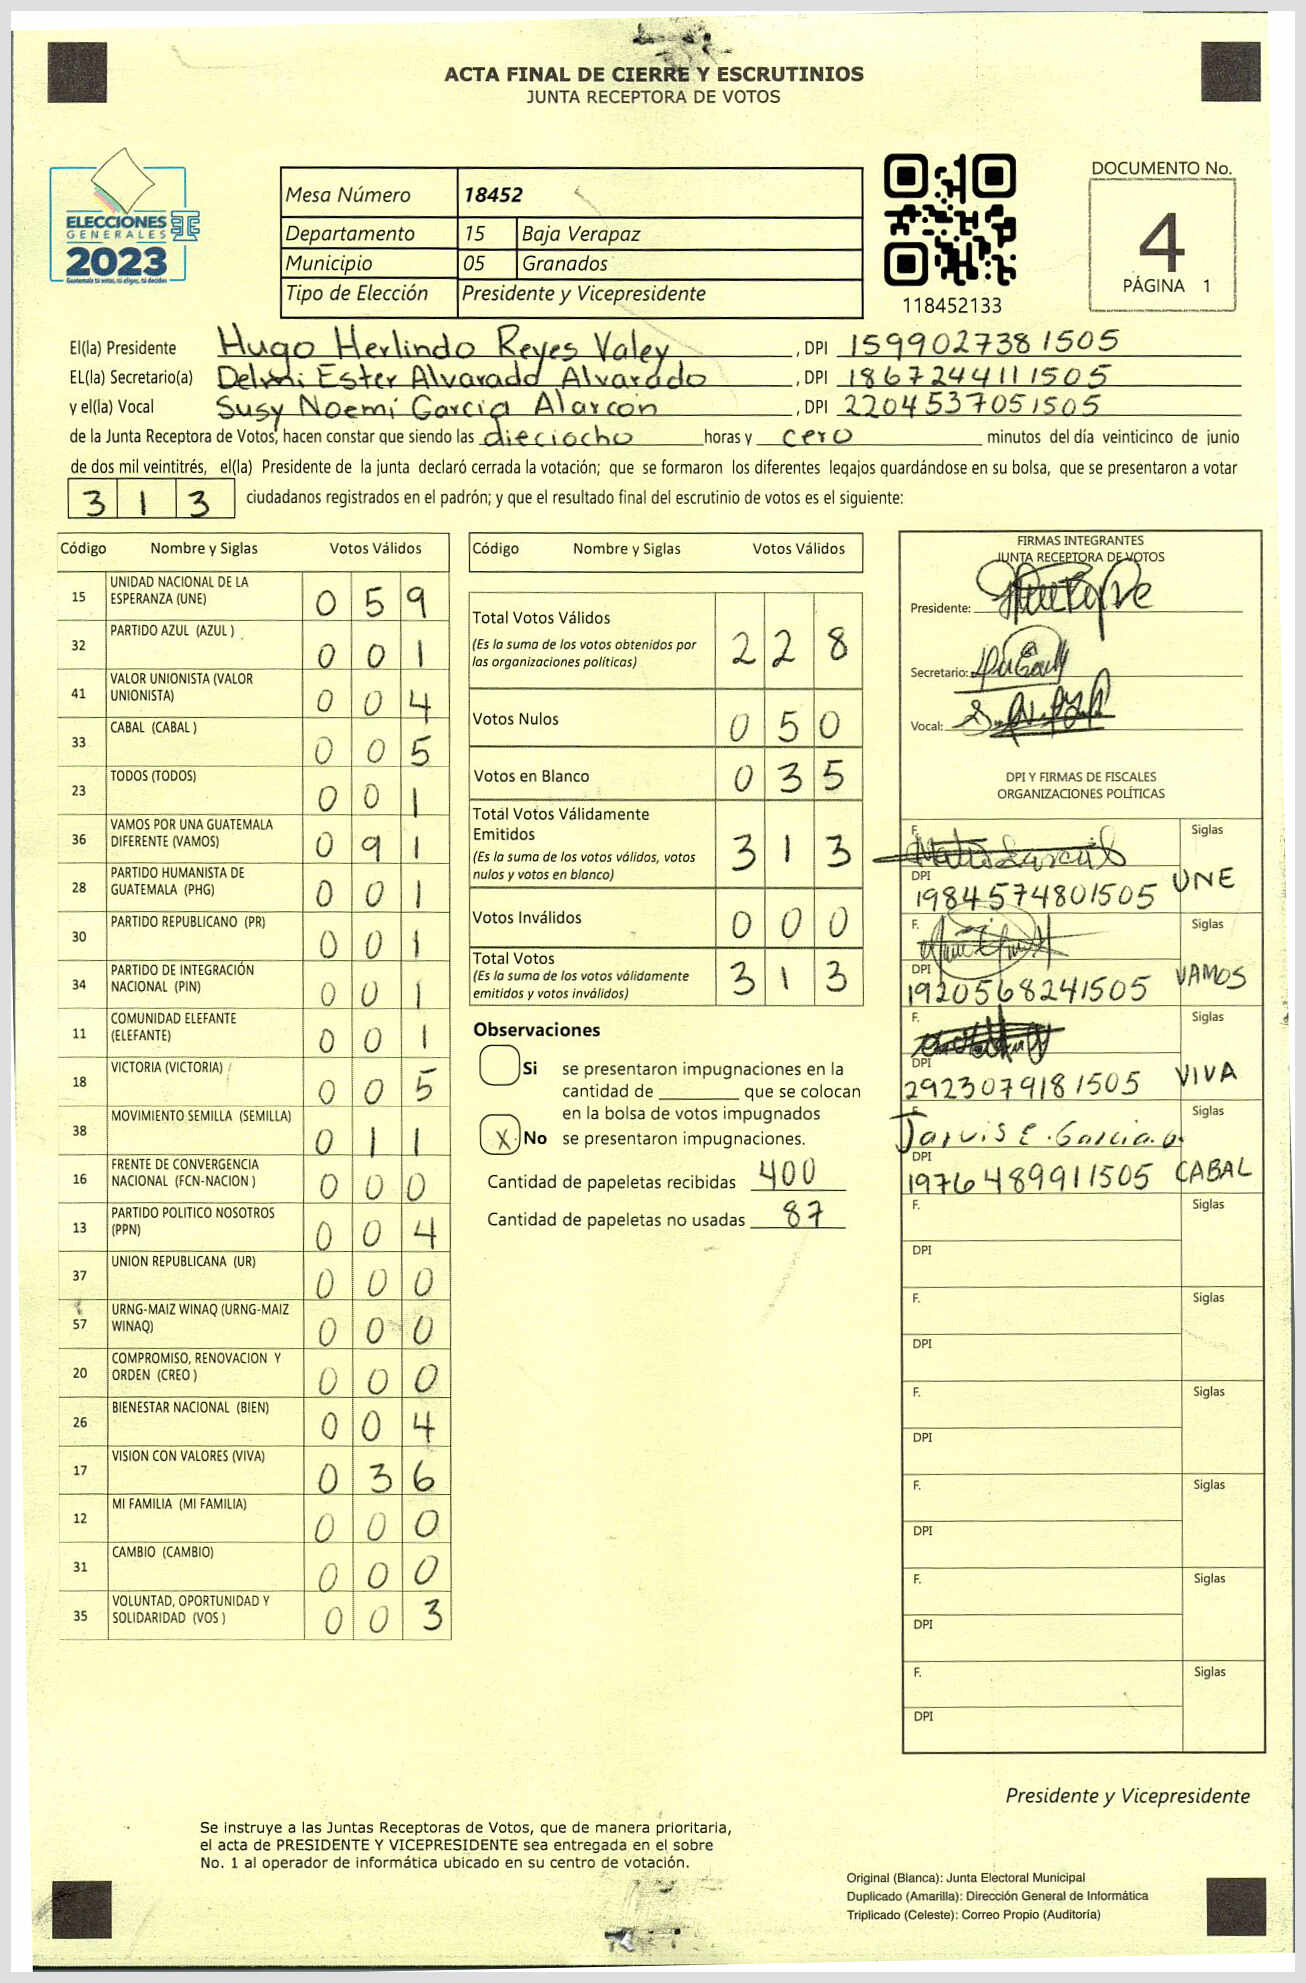 ACTA FINAL DE CIERRE Y ESCRUTINIOS
JUNTA RECEPTORA DE VOTOS
ELECCIONES
GENERALES
2023
Guatemala tú votas, tú eliges, tú decides
Mesa Número 18452
Departamento 15 Baja Verapaz
Municipio 05 Granados
Tipo de Elección Presidente y Vicepresidente
118452133
DOCUMENTO No.
4
PÁGINA 1
El(la) Presidente Hugo Herlindo Reyes Valey , DPI 1599027381505
EL(la) Secretario(a) Ester Alvarado Alvarado , DPI 1867244111505
y el(la) Vocal Susy Noemí Garcia Alarcón , DPI 2204537051505
de la Junta Receptora de Votos, hacen constar que siendo las dieciocho horas y cero minutos del día veinticinco de junio
de dos mil veintitrés, el(la) Presidente de la junta declaró cerrada la votación; que se formaron los diferentes legajos guardándose en su bolsa, que se presentaron a votar
313 ciudadanos registrados en el padrón; y que el resultado final del escrutinio de votos es el siguiente:
Código Nombre y Siglas Votos Válidos
15 UNIDAD NACIONAL DE LA ESPERANZA (UNE) 059
32 PARTIDO AZUL (AZUL ) 001
41 VALOR UNIONISTA (VALOR UNIONISTA) 004
33 CABAL (CABAL ) 005
23 TODOS (TODOS) 001
36 VAMOS POR UNA GUATEMALA DIFERENTE (VAMOS) 091
28 PARTIDO HUMANISTA DE GUATEMALA (PHG) 001
30 PARTIDO REPUBLICANO (PR) 001
34 PARTIDO DE INTEGRACIÓN NACIONAL (PIN) 001
11 COMUNIDAD ELEFANTE (ELEFANTE) 001
18 VICTORIA (VICTORIA) 005
38 MOVIMIENTO SEMILLA (SEMILLA) 011
16 FRENTE DE CONVERGENCIA NACIONAL (FCN-NACION ) 000
13 PARTIDO POLITICO NOSOTROS (PPN) 004
37 UNION REPUBLICANA (UR) 000
57 URNG-MAIZ WINAQ (URNG-MAIZ WINAQ) 000
20 COMPROMISO, RENOVACION Y ORDEN (CREO ) 000
26 BIENESTAR NACIONAL (BIEN) 004
17 VISION CON VALORES (VIVA) 036
12 MI FAMILIA (MI FAMILIA) 000
31 CAMBIO (CAMBIO) 000
35 VOLUNTAD, OPORTUNIDAD Y SOLIDARIDAD (VOS ) 003
Código Nombre y Siglas Votos Válidos
Total Votos Válidos 228
(Es la suma de los votos obtenidos por
las organizaciones políticas)
Votos Nulos 050
Votos en Blanco 035
Total Votos Válidamente
Emitidos 313
(Es la suma de los votos válidos, votos
nulos y votos en blanco)
Votos Inválidos 000
Total Votos 313
(Es la suma de los votos válidamente
emitidos y votos inválidos)
Observaciones
Si se presentaron impugnaciones en la
cantidad de ________ que se colocan
en la bolsa de votos impugnados
X No se presentaron impugnaciones.
Cantidad de papeletas recibidas 400
Cantidad de papeletas no usadas 87
FIRMAS INTEGRANTES
JUNTA RECEPTORA DE VOTOS
Presidente:
Secretario:
Vocal:
DPI Y FIRMAS DE FISCALES
ORGANIZACIONES POLÍTICAS
F. Siglas
DPI 1984574801505 UNE
F. Siglas
DPI 1920568241505 VAMOS
F. Siglas
DPI 2923079181505 VIVA
F. Jarvis E. Garcia. Siglas
DPI 1976489911505 CABAL
F. Siglas
DPI
F. Siglas
DPI
F. Siglas
DPI
F. Siglas
DPI
F. Siglas
DPI
F. Siglas
DPI
Presidente y Vicepresidente
Se instruye a las Juntas Receptoras de Votos, que de manera prioritaria,
el acta de PRESIDENTE Y VICEPRESIDENTE sea entregada en el sobre
No. 1 al operador de informática ubicado en su centro de votación.
Original (Blanca): Junta Electoral Municipal
Duplicado (Amarilla): Dirección General de Informática
Triplicado (Celeste): Correo Propio (Auditoría)